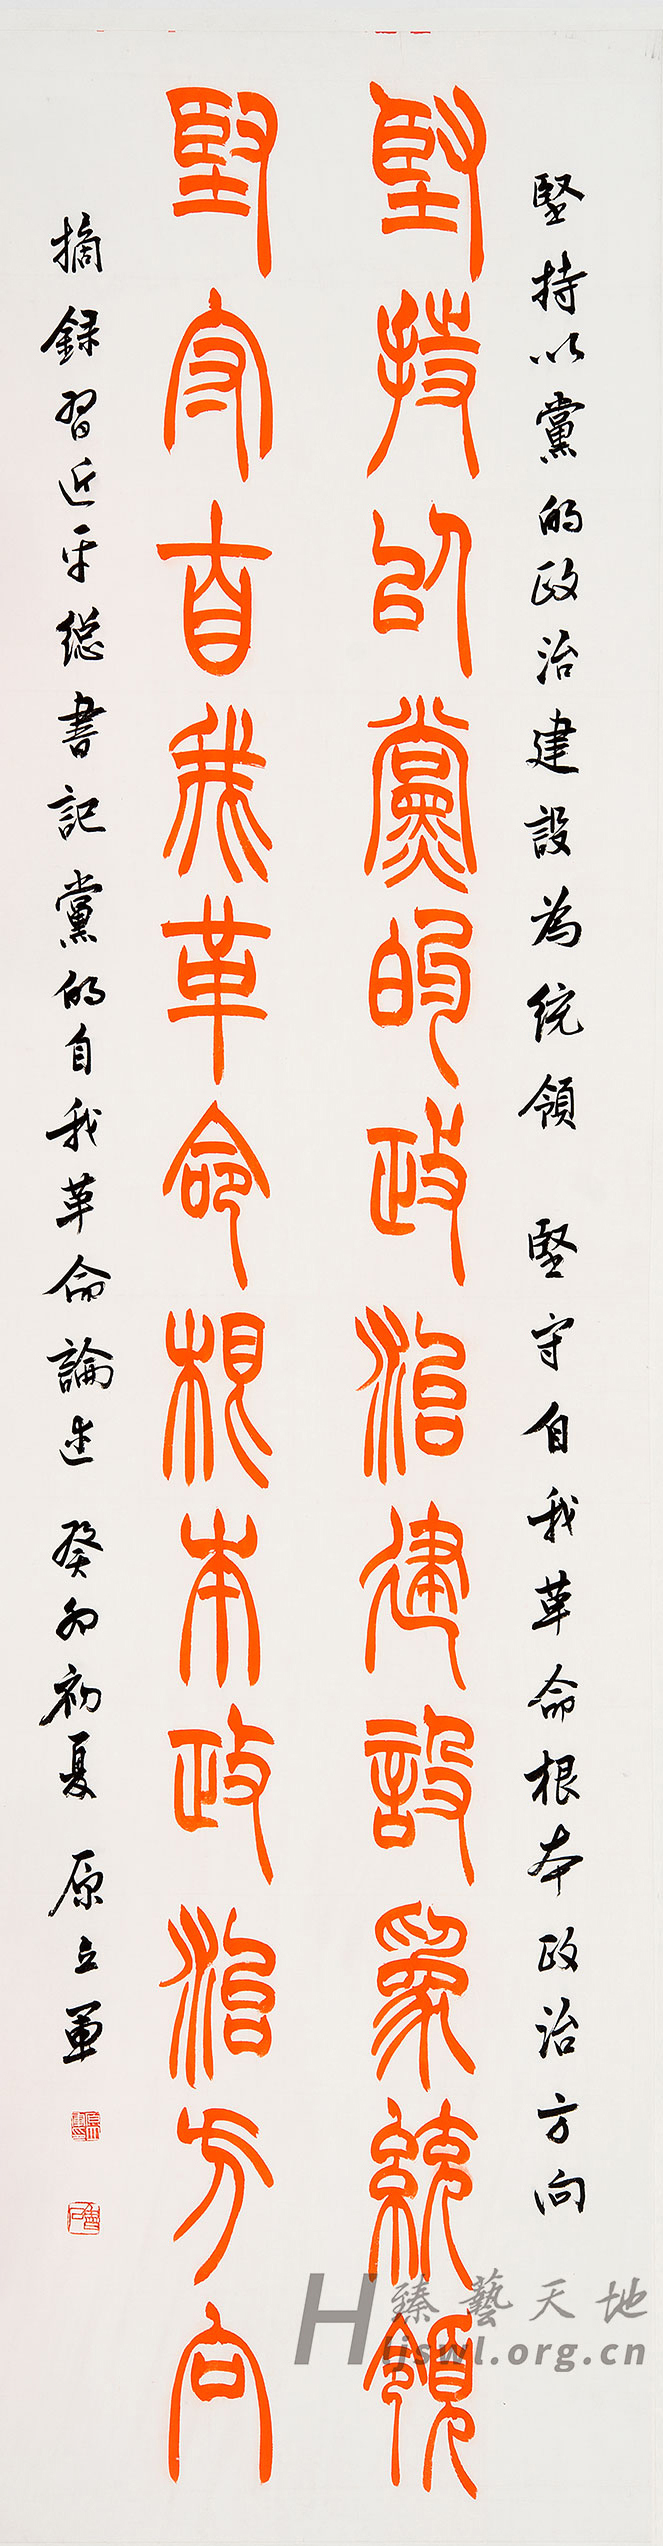 堅持以黨的政治建設為統領 堅守自我革命根本政治方向
堅持以黨的政治建設為統領
堅守自我革命根本政治方向
摘録習近平總書記黨的自我革命論述 癸卯初夏 原立軍
臻藝天地
Hljswl.org.cn